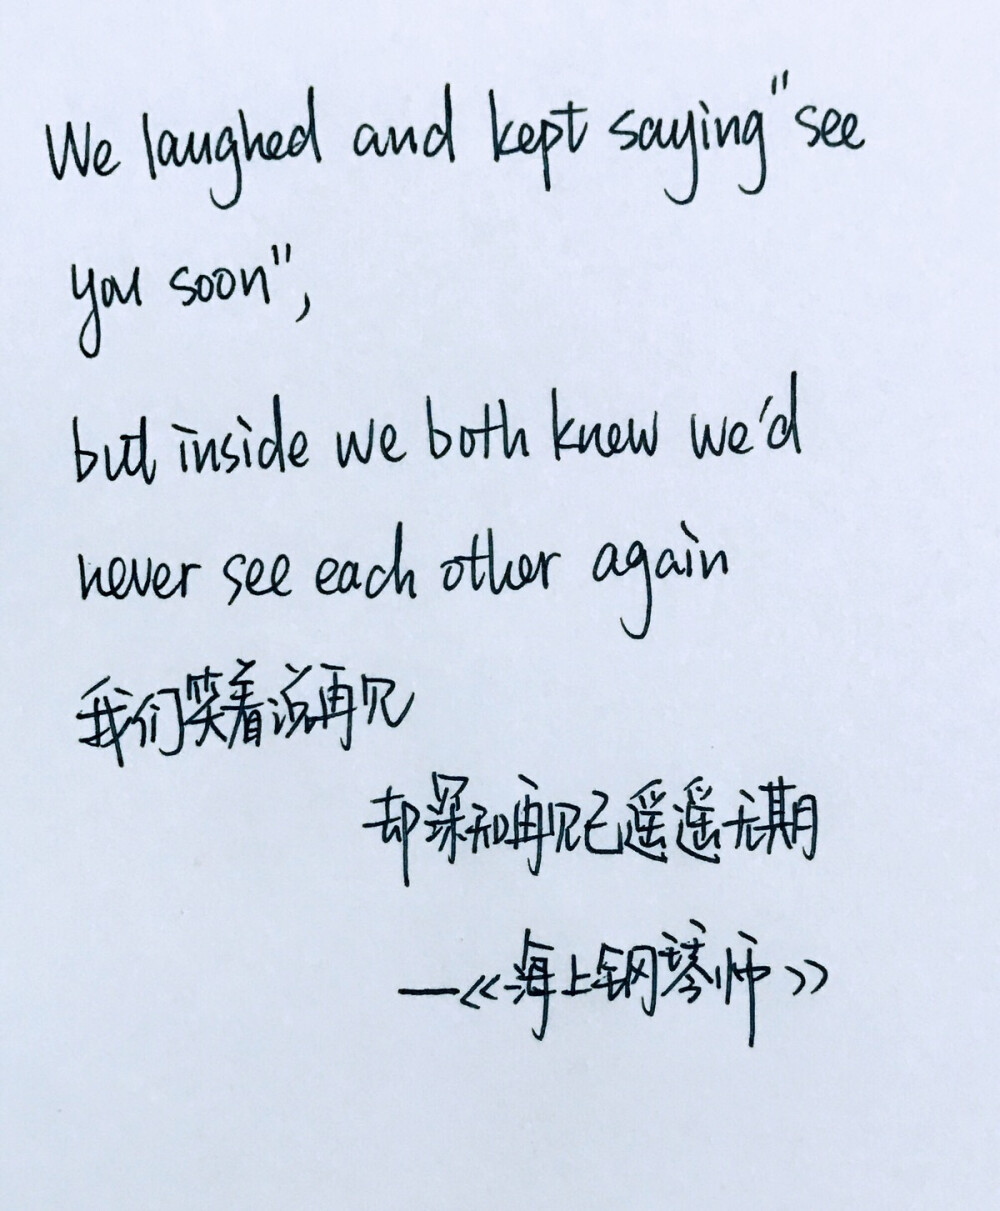 We laughed and kept saying "see
you soon",
but inside we both knew we'd
never see each other again
我们笑着说再见
却深知再见已遥遥无期
—《海上钢琴师》